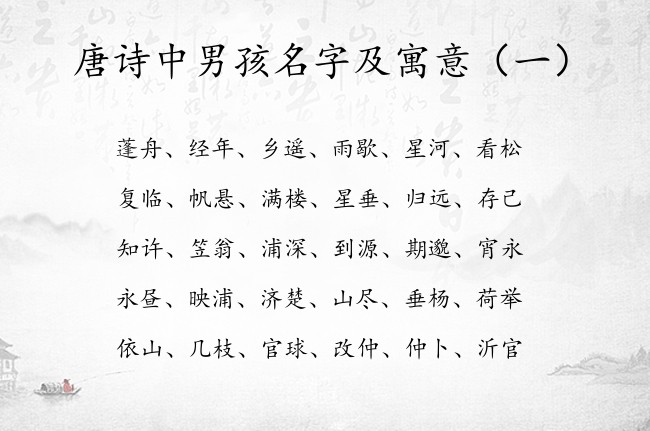 唐诗中男孩名字及寓意（一）
蓬舟、经年、乡遥、雨歇、星河、看松
复临、帆悬、满楼、星垂、归远、存己
知许、笠翁、浦深、到源、期邈、宵永
永昼、映浦、济楚、山尽、垂杨、荷举
依山、几枝、官球、改仲、仲卜、沂官